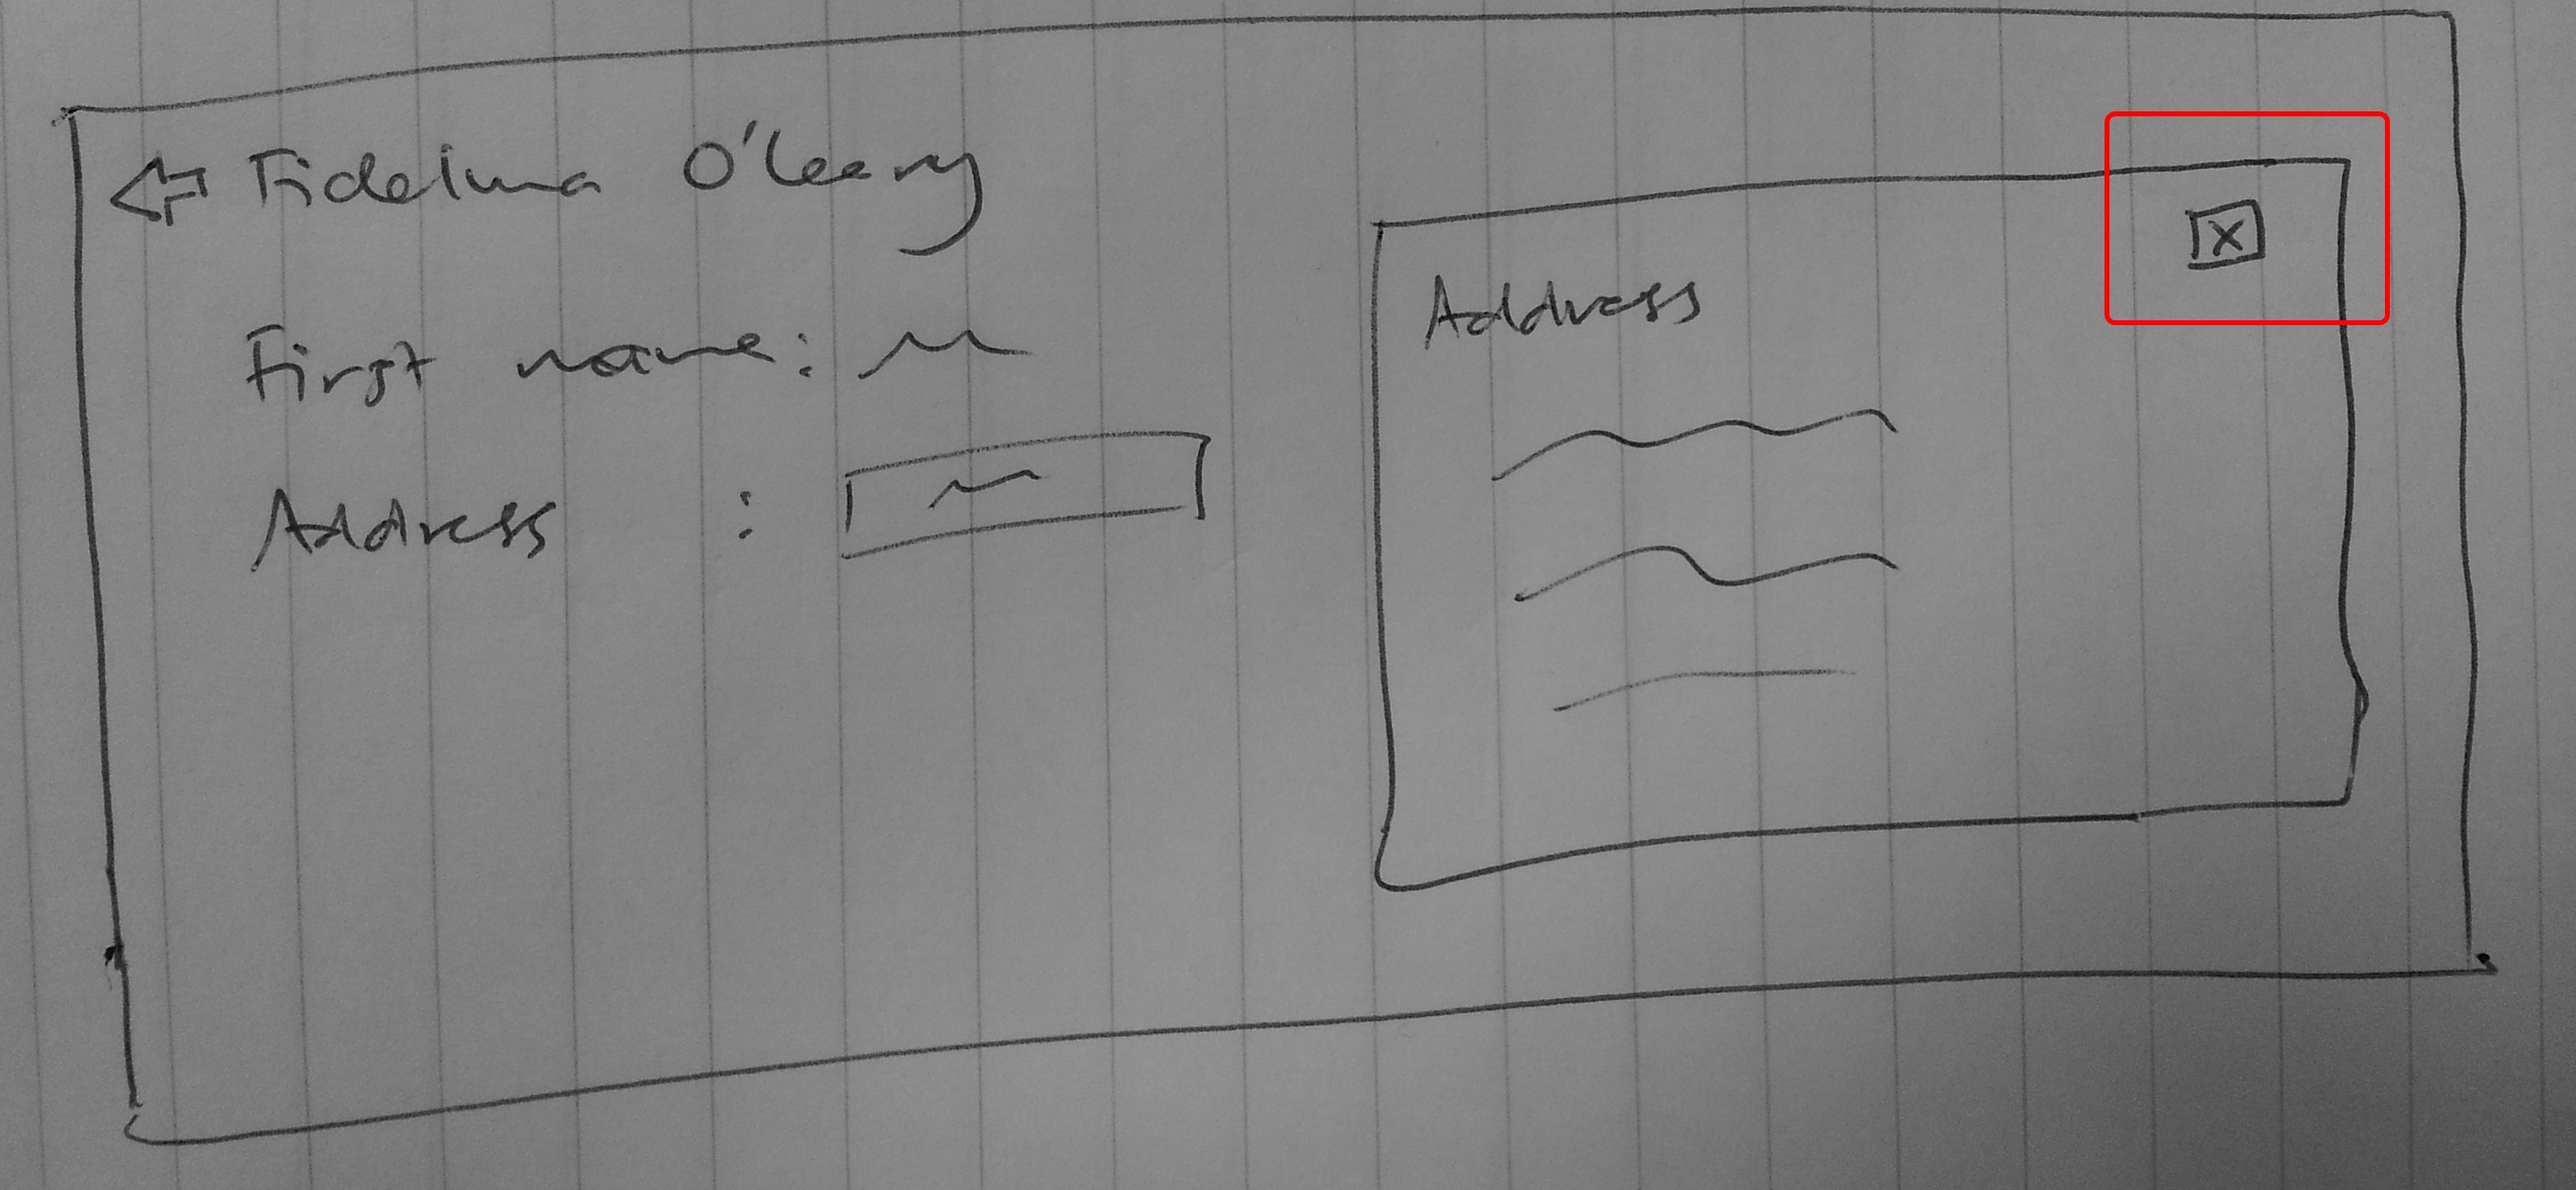 Fidelma O'Leary
First name:
Address :
Address
X